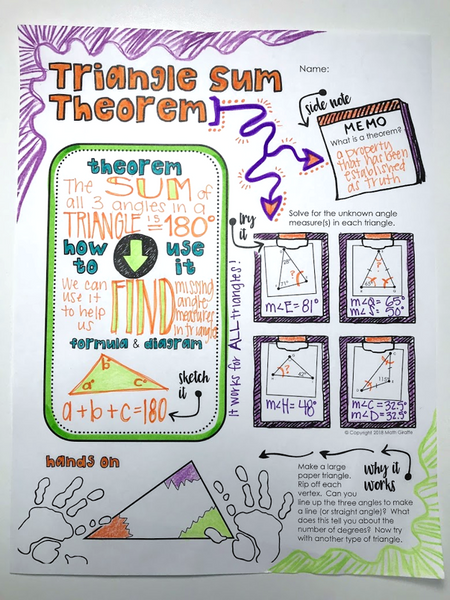 Triangle Sum
Theorem
Name:
side note
MEMO
What is a theorem?
a property
that has been
established
as truth
theorem
The SUM of
all 3 angles in a
TRIANGLE is = 180°
how to use it
We can use it to help us
FIND
missing angle measures in triangles
formula & diagram
a° b° c°
sketch it
a + b + c = 180
try it
It works for ALL triangles!
Solve for the unknown angle
measure(s) in each triangle.
m∠E = 81°
m∠Q = 65°
m∠S = 50°
m∠H = 48°
m∠C = 32.5°
m∠D = 32.5°
© Copyright 2018 Math Giraffe
hands on
why it works
Make a large
paper triangle.
Rip off each
vertex. Can you
line up the three angles to make
a line (or straight angle)? What
does this tell you about the
number of degrees? Now try
with another type of triangle.